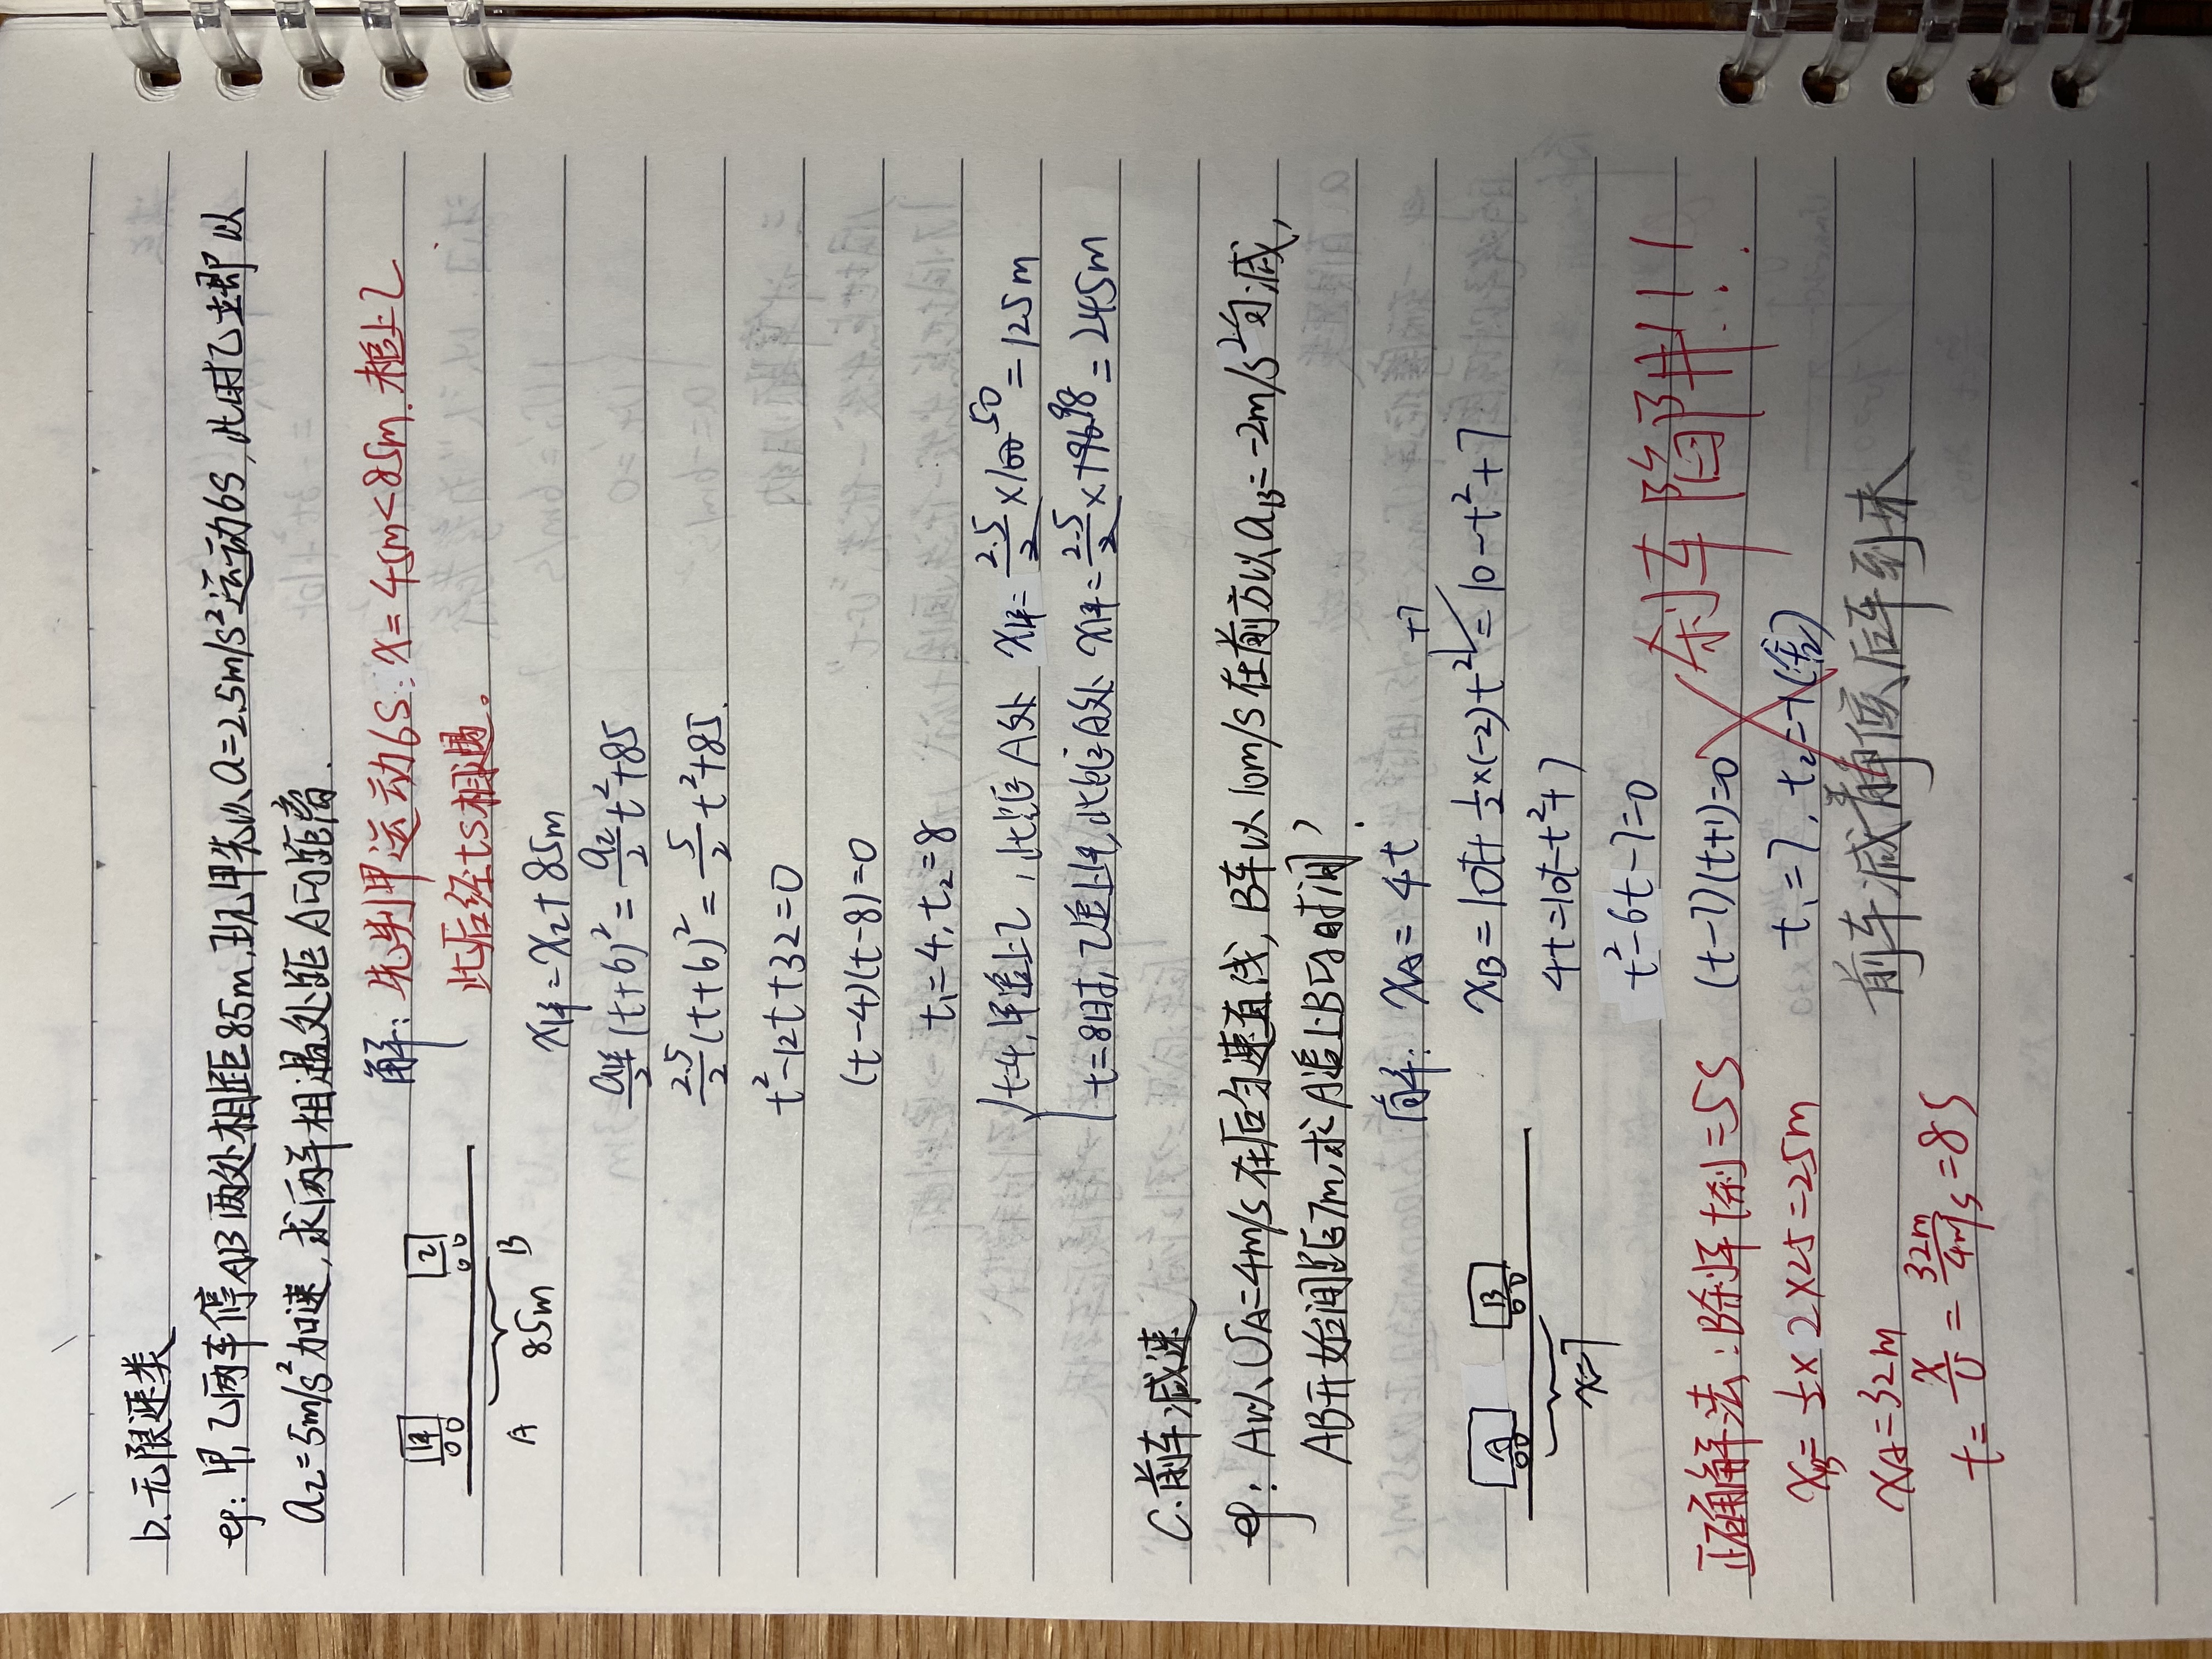 b.无限速类
ep:甲,乙两车停AB两处相距85m,现甲先以a=2.5m/s²运动6s,此时乙立即以
a乙=5m/s²加速,求两车相遇处距A的距离.
甲 乙
A B
85m
解: 先判甲运动6s: x=45m<85m.未追上乙
此后经ts相遇。
x甲=x乙+85m
a甲/2(t+6)²=a乙/2 t²+85
2.5/2(t+6)²=5/2 t²+85.
t²-12t+32=0
(t-4)(t-8)=0
t₁=4,t₂=8
t=4,甲追上乙,此距A处 x甲=2.5/2×100 50=125m
t=8时,乙追上甲,此距A处 x甲=2.5/2×196 98=245m
C.前车减速
ep:A以υA=4m/s在后匀速直线,B车以10m/s在前方以aB=-2m/s²匀减,
AB开始间距7m,求A追上B的时间.
A B
x=7
解: xA=4t
xB=10t+½×(-2)t²+7=10-t²+7
4t=10t-t²+7
t²-6t-7=0
(t-7)(t+1)=0
t₁=7,t₂=-1(舍)
刹车陷阱!!!
前车减着停后车到来
正确解法:B车刹车t刹=5s
xB=½×2×25=25m
xA=32m
t=x/υ=32m/4m/s=8s